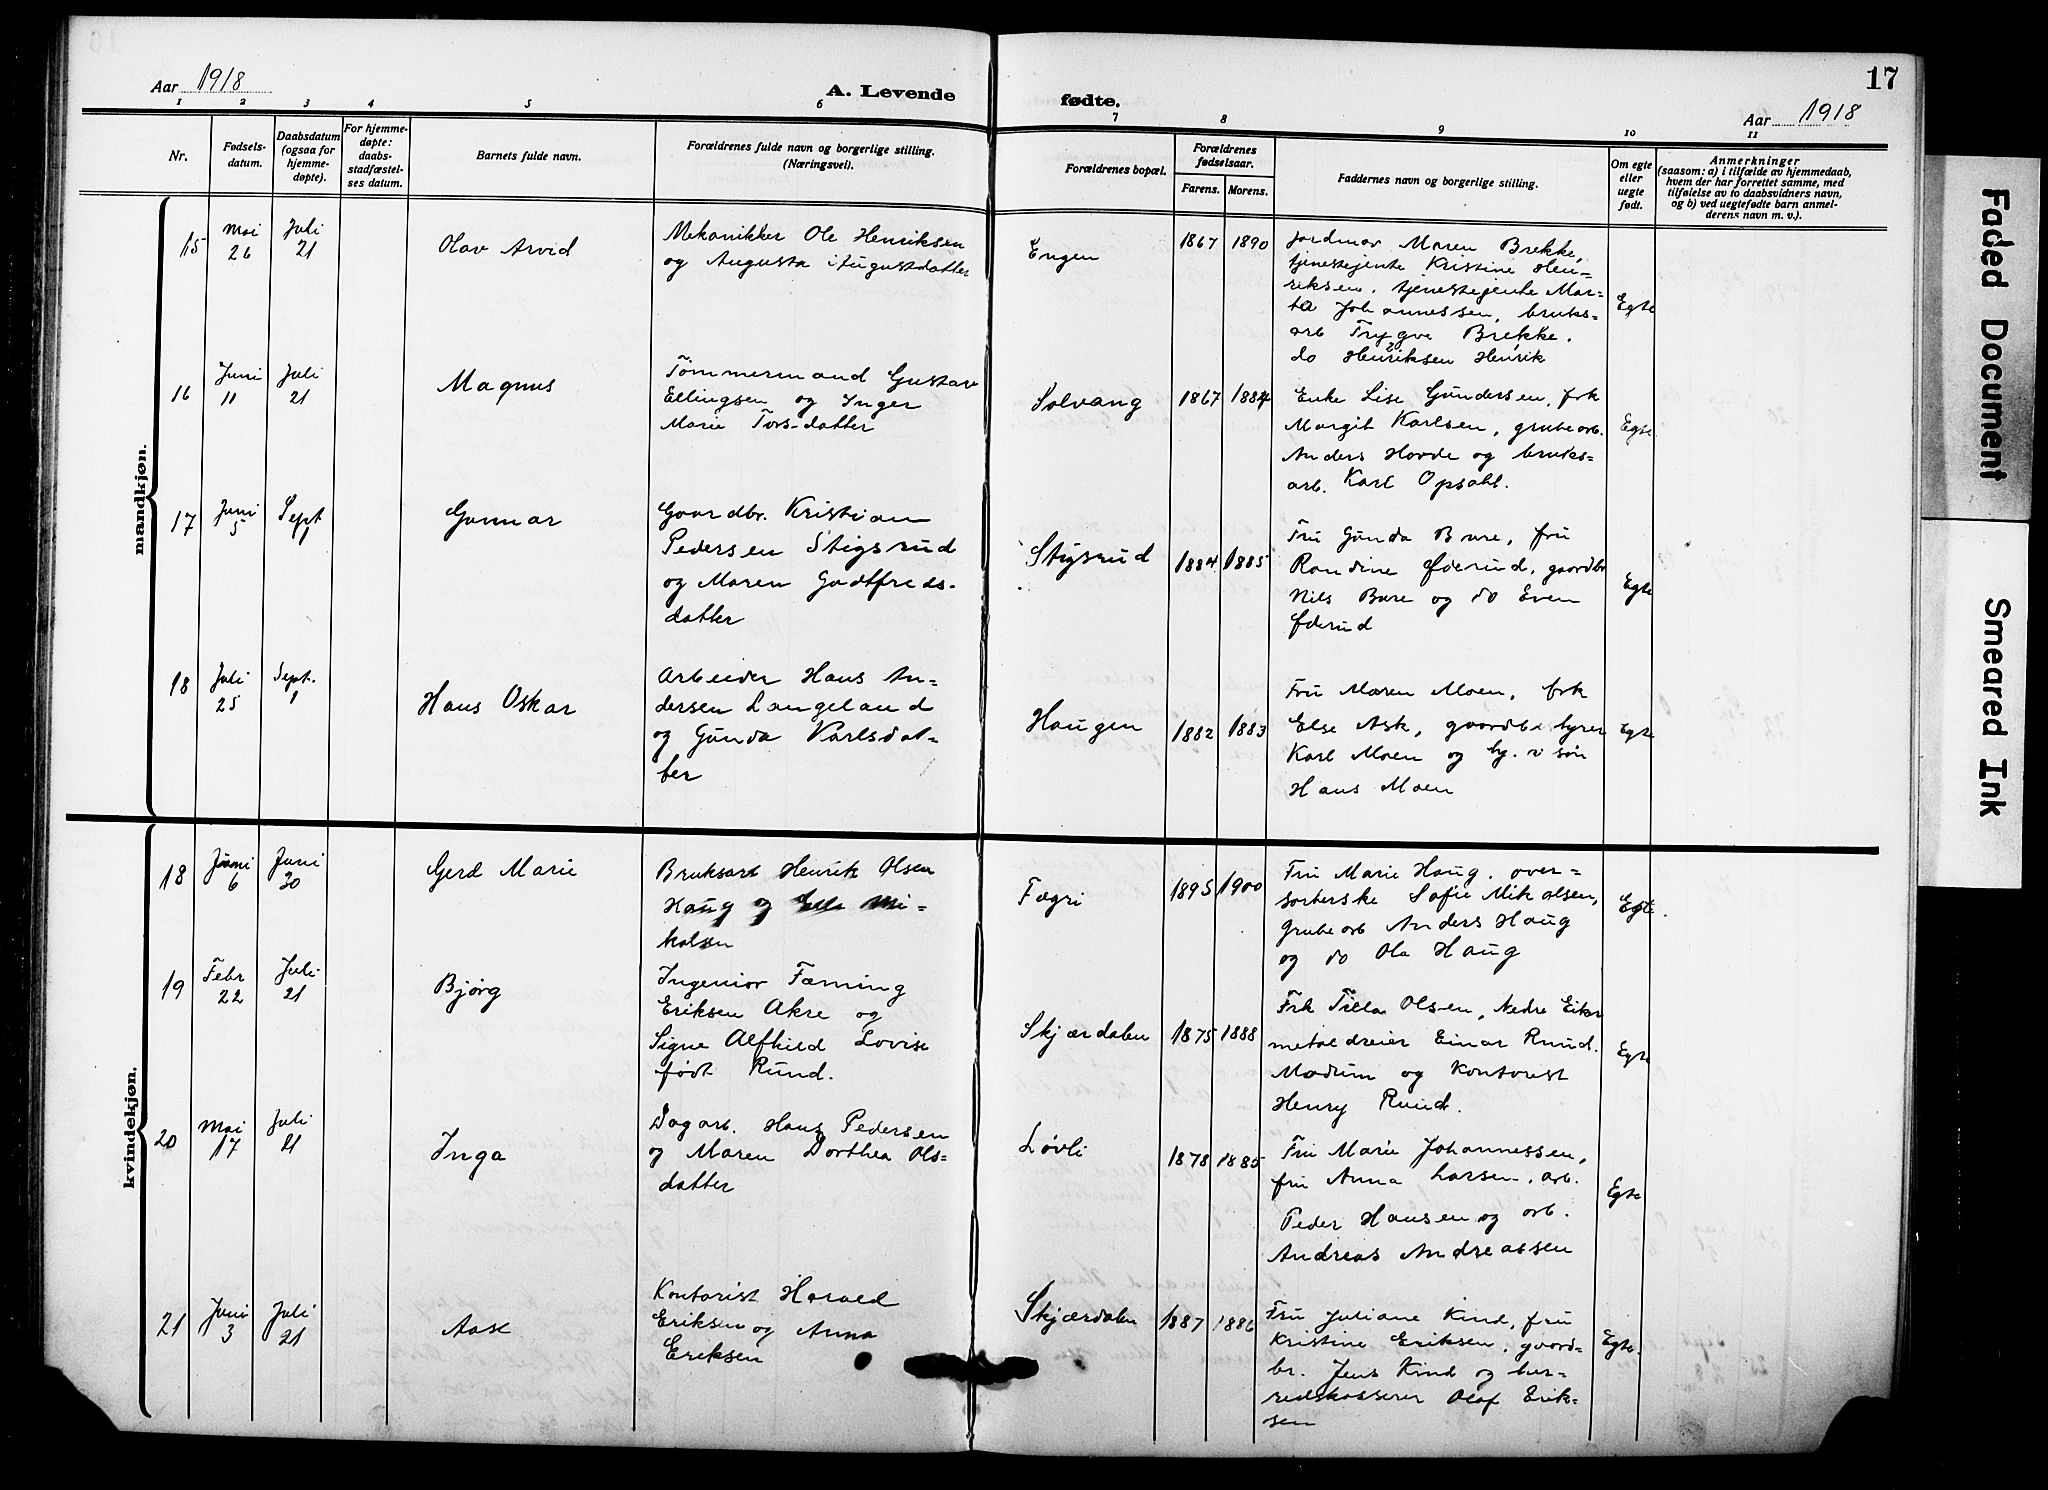 Aar 1918
A. Levende
fødte.
17
Aar 1918
1 2 3 4 5 6 7 8 9 10 11
Nr.
Fødsels-
datum.
Daabsdatum
(ogsaa for
hjemme-
døpte).
For hjemme-
døpte:
daabs-
stadfæstel-
ses datum.
Barnets fulde navn.
Forældrenes fulde navn og borgerlige stilling.
(Næringsvei).
Forældrenes bopæl.
Forældrenes
fødselsaar.
Farens. Morens.
Faddernes navn og borgerlige stilling.
Om egte
eller
uegte
født.
Anmerkninger
(saasom: a) i tilfælde av hjemmedaab,
hvem der har forrettet samme, med
tilføielse av to daabsvidners navn,
og b) ved uegtefødte barn anmel-
derens navn m. v.).
mandkjøn.
15
Mai
26
Juli
21
Olav Arvid
Mekanikker Ole Henriksen
og Augusta Augustdatter
Engen
1867 1890
Jordmor Maren Brekke,
tjenestejente Kristine Hen-
riksen, tjenestejente Mar-
ta Johannessen, bruks-
arb Trygve Brekke.
do Henriksen Henrik
Egte
16
Juni
11
Juli
21
Magnus
Tømmermand Gustav
Ellingsen og Inger
Marie Torsdatter
Solvang
1867 1884
Enke Lise Gundersen, frk
Margit Karlsen, grubearb.
Anders Hovde og bruks-
arb. Karl Opsahl.
Egte
17
Juni
5
Sept
1
Gunnar
Gaardbr. Kristian
Pedersen Stigsrud
og Maren Godtfreds-
datter
Stigsrud
1884 1885
Fru Gunda Bure, fru
Randine Øderud, gaardbr
Nils Bure og do Even
Øderud
Egte
18
Juli
25
Sept.
1
Hans Oskar
Arbeider Hans An-
dersen Langeland
og Gunda Karlsdat-
ter
Haugen
1882 1883
Fru Maren Moen, frk
Else Ask, gaardbestyrer
Karl Moen og søn
Hans Moen
Egte
kvindekjøn.
18
Juni
6
Juni
30
Gerd Marie
Bruksarb Henrik Olsen
Haug og Mi-
kalsen
Fagri
1895 1900
Fru Marie Haug, over-
sorterske Sofie Mikalsen,
grubearb Anders Haug
og do Ola Haug
Egte.
19
Febr
22
Juli
21
Bjørg
Ingeniør Fleming
Eriksen Akre og
Signe Alfhild Lovise
født Ruud.
Skjærdalen
1875 1888
Frk Tilla Olsen, Nedre Eiker
metaldreier Einar Ruud.
Modum og Kontorist
Henry Ruud.
Egte
20
Mai
17
Juli
21
Inga
Dagarb. Hans Pedersen
og Maren Dorthea Ols-
datter
Løvli
1878 1885
Fru Marie Johannessen,
fru Anna Larsen, arb.
Peder Hansen og arb.
Andreas Andreassen
Egte
21
Juni
3
Juli
21
Aase
Kontorist Harald
Eriksen og Anna
Eriksen
Skjærdalen
1887 1886
Fru Juliane Kind, fru
Kristine Eriksen, gaard-
br. Jens Kind og her-
redskasserer Olaf Erik-
sen
Egte.
Faded Document
Smeared Ink